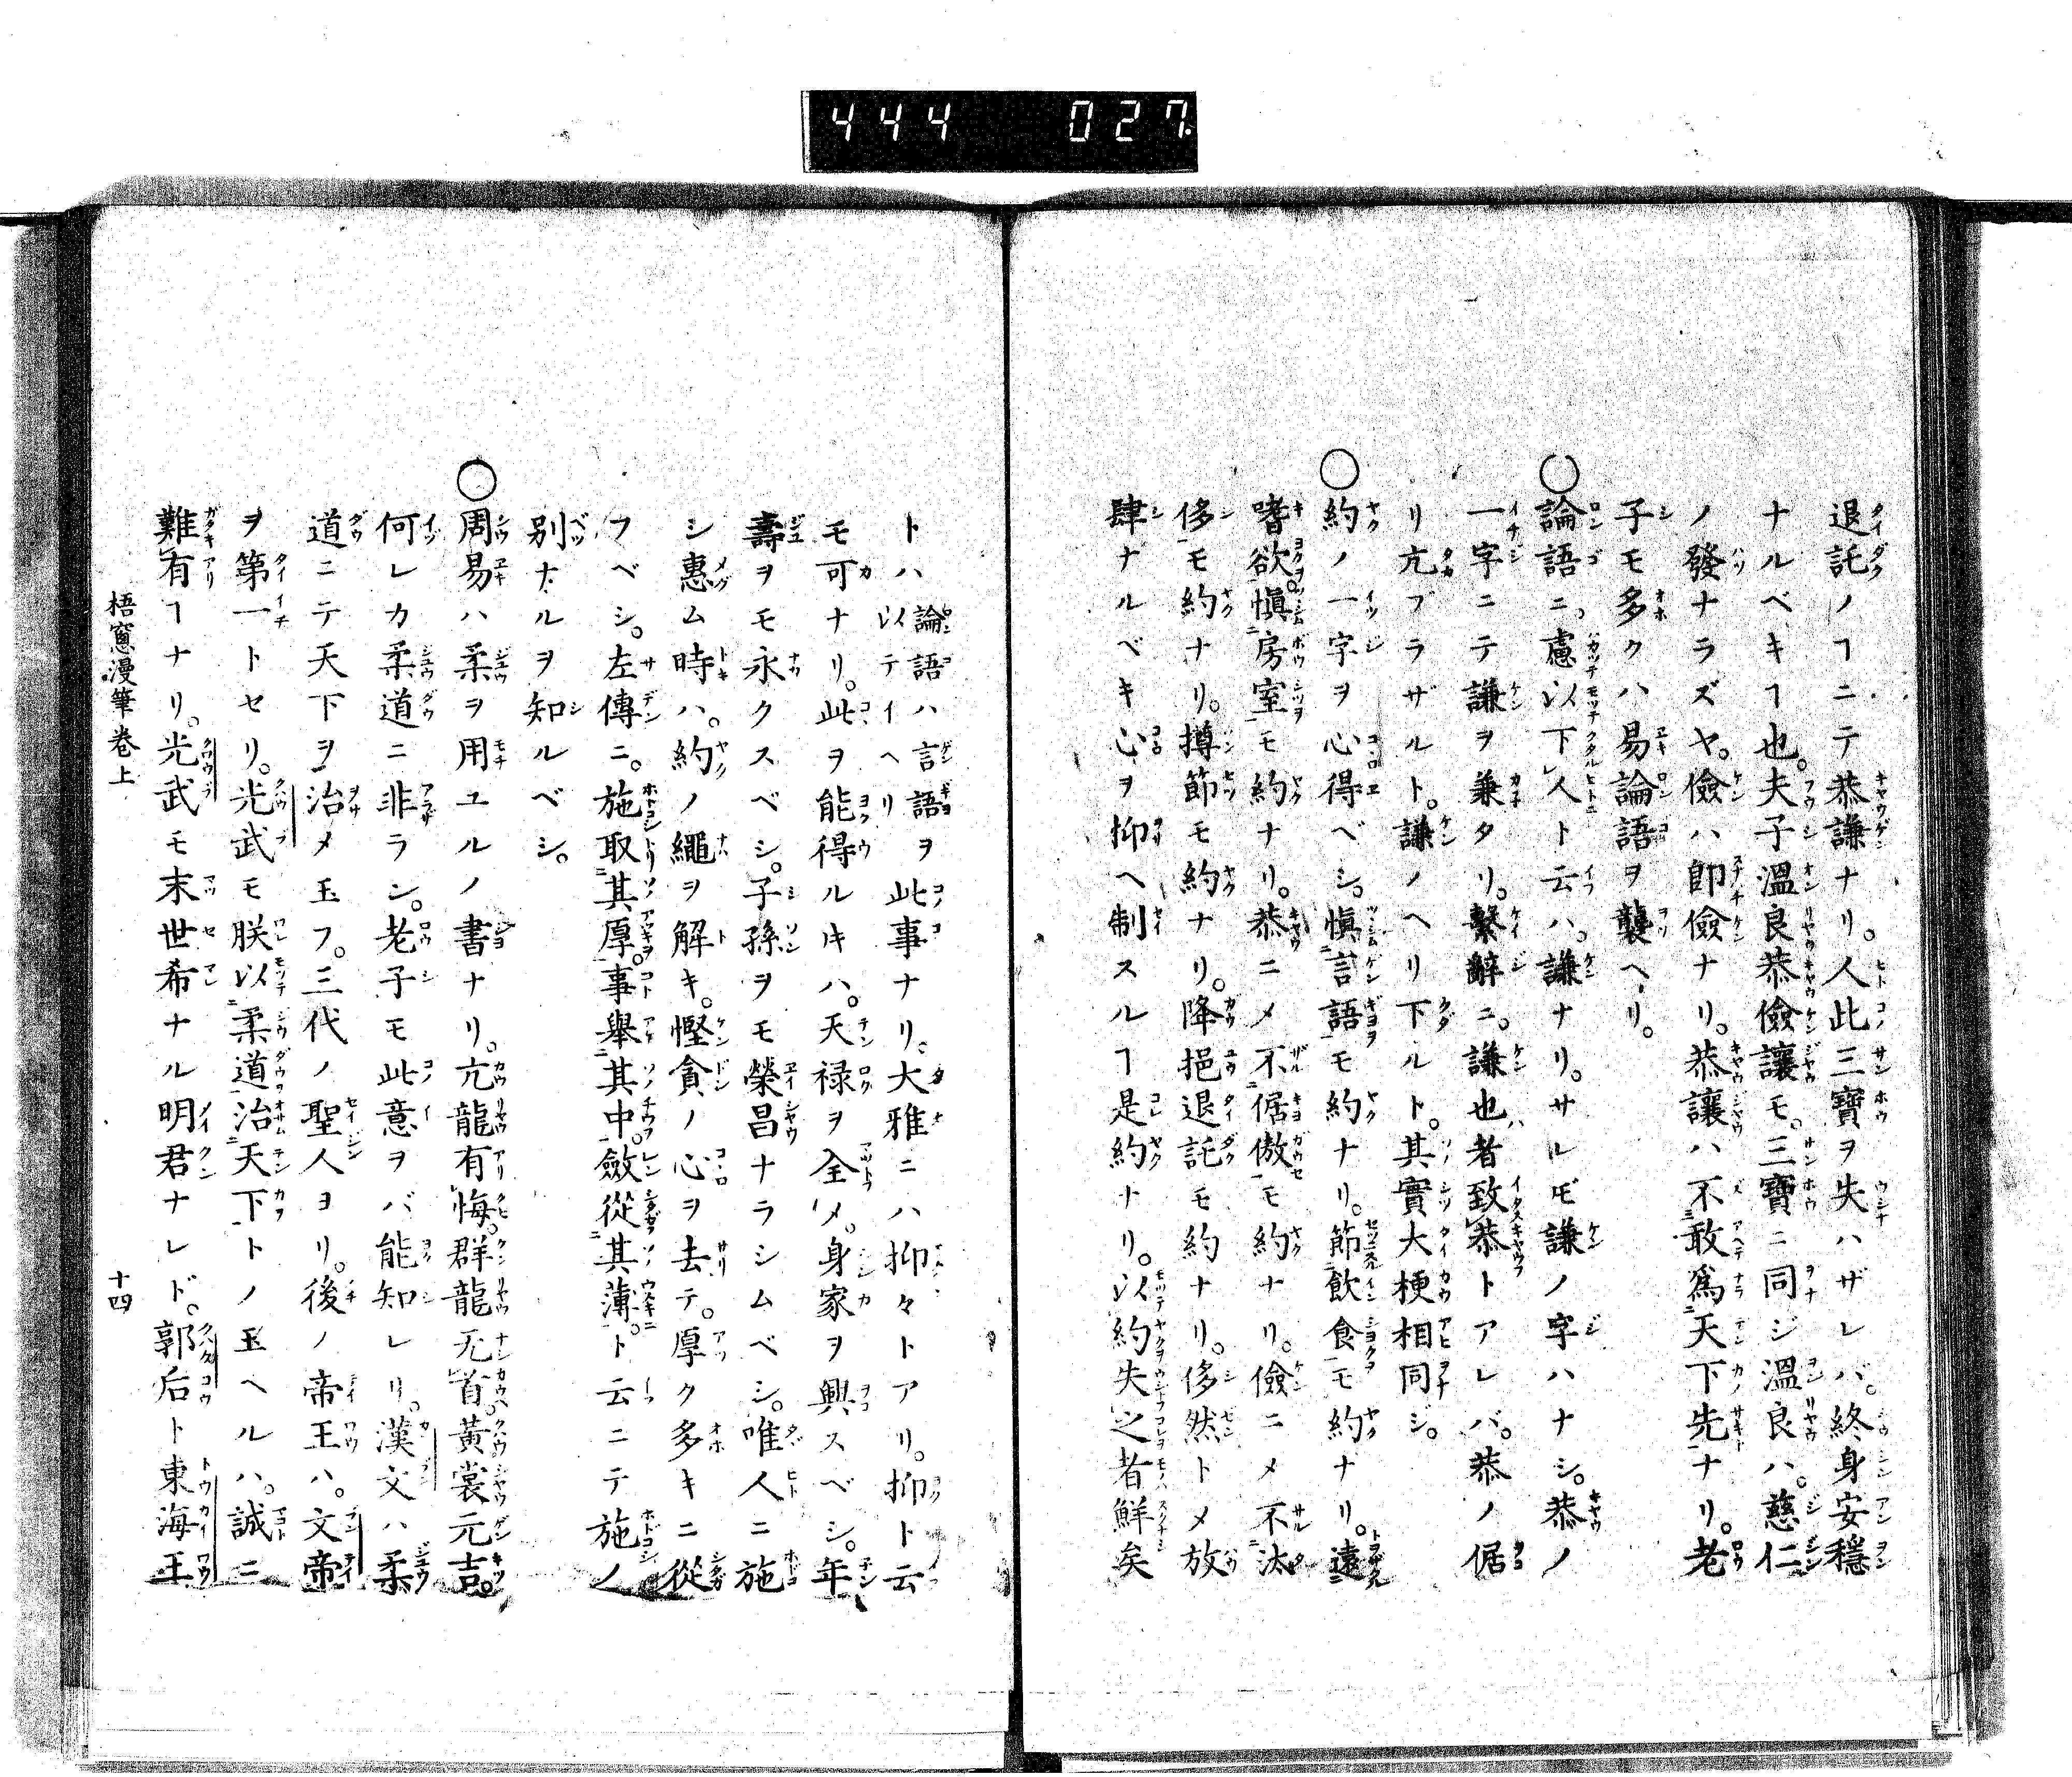 444 027
退託ノヿニテ恭謙ナリ。人此三寶ヲ失ハザレバ。終身安穩
ナルベキヿ也。夫子溫良恭儉讓モ。三寶ニ同ジ溫良ハ。慈仁
ノ發ナラズヤ。儉ハ卽儉ナリ。恭讓ハ不敢爲天下先ナリ。老
子モ多クハ易論語ヲ襲ヘリ。
○論語ニ。慮以下人ト云ハ。謙ナリ。サレ𪜈謙ノ字ハナシ。恭ノ
一字ニテ謙ヲ兼タリ。繫辭ニ。謙也者致恭トアレバ。恭ノ倨
リ亢ブラザルト。謙ノヘリ下ルト。其實大梗相同ジ。
○約ノ一字ヲ心得ベシ。愼言語モ約ナリ。節飮食モ約ナリ。遠
嗜欲愼房室モ約ナリ。恭ニメ不倨傲モ約ナリ。儉ニメ不汰
侈モ約ナリ。撙節モ約ナリ。降挹退託モ約ナリ。侈然トメ放
肆ナルベキ心ヲ抑ヘ制スルヿ是約ナリ。以約失之者鮮矣
トハ論語ハ言語ヲ以テイヘリ此事ナリ。大雅ニハ抑々トアリ。抑ト云
モ可ナリ。此ヲ能得ルキハ。天祿ヲ全メ。身家ヲ興スベシ。年
壽ヲモ永クスベシ。子孫ヲモ榮昌ナラシムベシ。唯人ニ施
シ惠ム時ハ。約ノ繩ヲ解キ。慳貪ノ心ヲ去テ。厚ク多キニ從
フベシ。左傳ニ。施取其厚。事舉其中。斂從其薄。ト云ニテ施ノ
別ナルヲ知ルベシ。
○周易ハ柔ヲ用ユルノ書ナリ。亢龍有悔。群龍无首。黃裳元吉。
何レカ柔道ニ非ラン。老子モ此意ヲバ能知レリ。漢文ハ柔
道ニテ天下ヲ治メ玉フ。三代ノ聖人ヨリ。後ノ帝王ハ。文帝
ヲ第一トセリ。光武モ朕以柔道治天下トノ玉ヘルハ。誠ニ
難有ヿナリ。光武モ末世希ナル明君ナレド。郭后ト東海王
梧窻漫筆卷上 十四